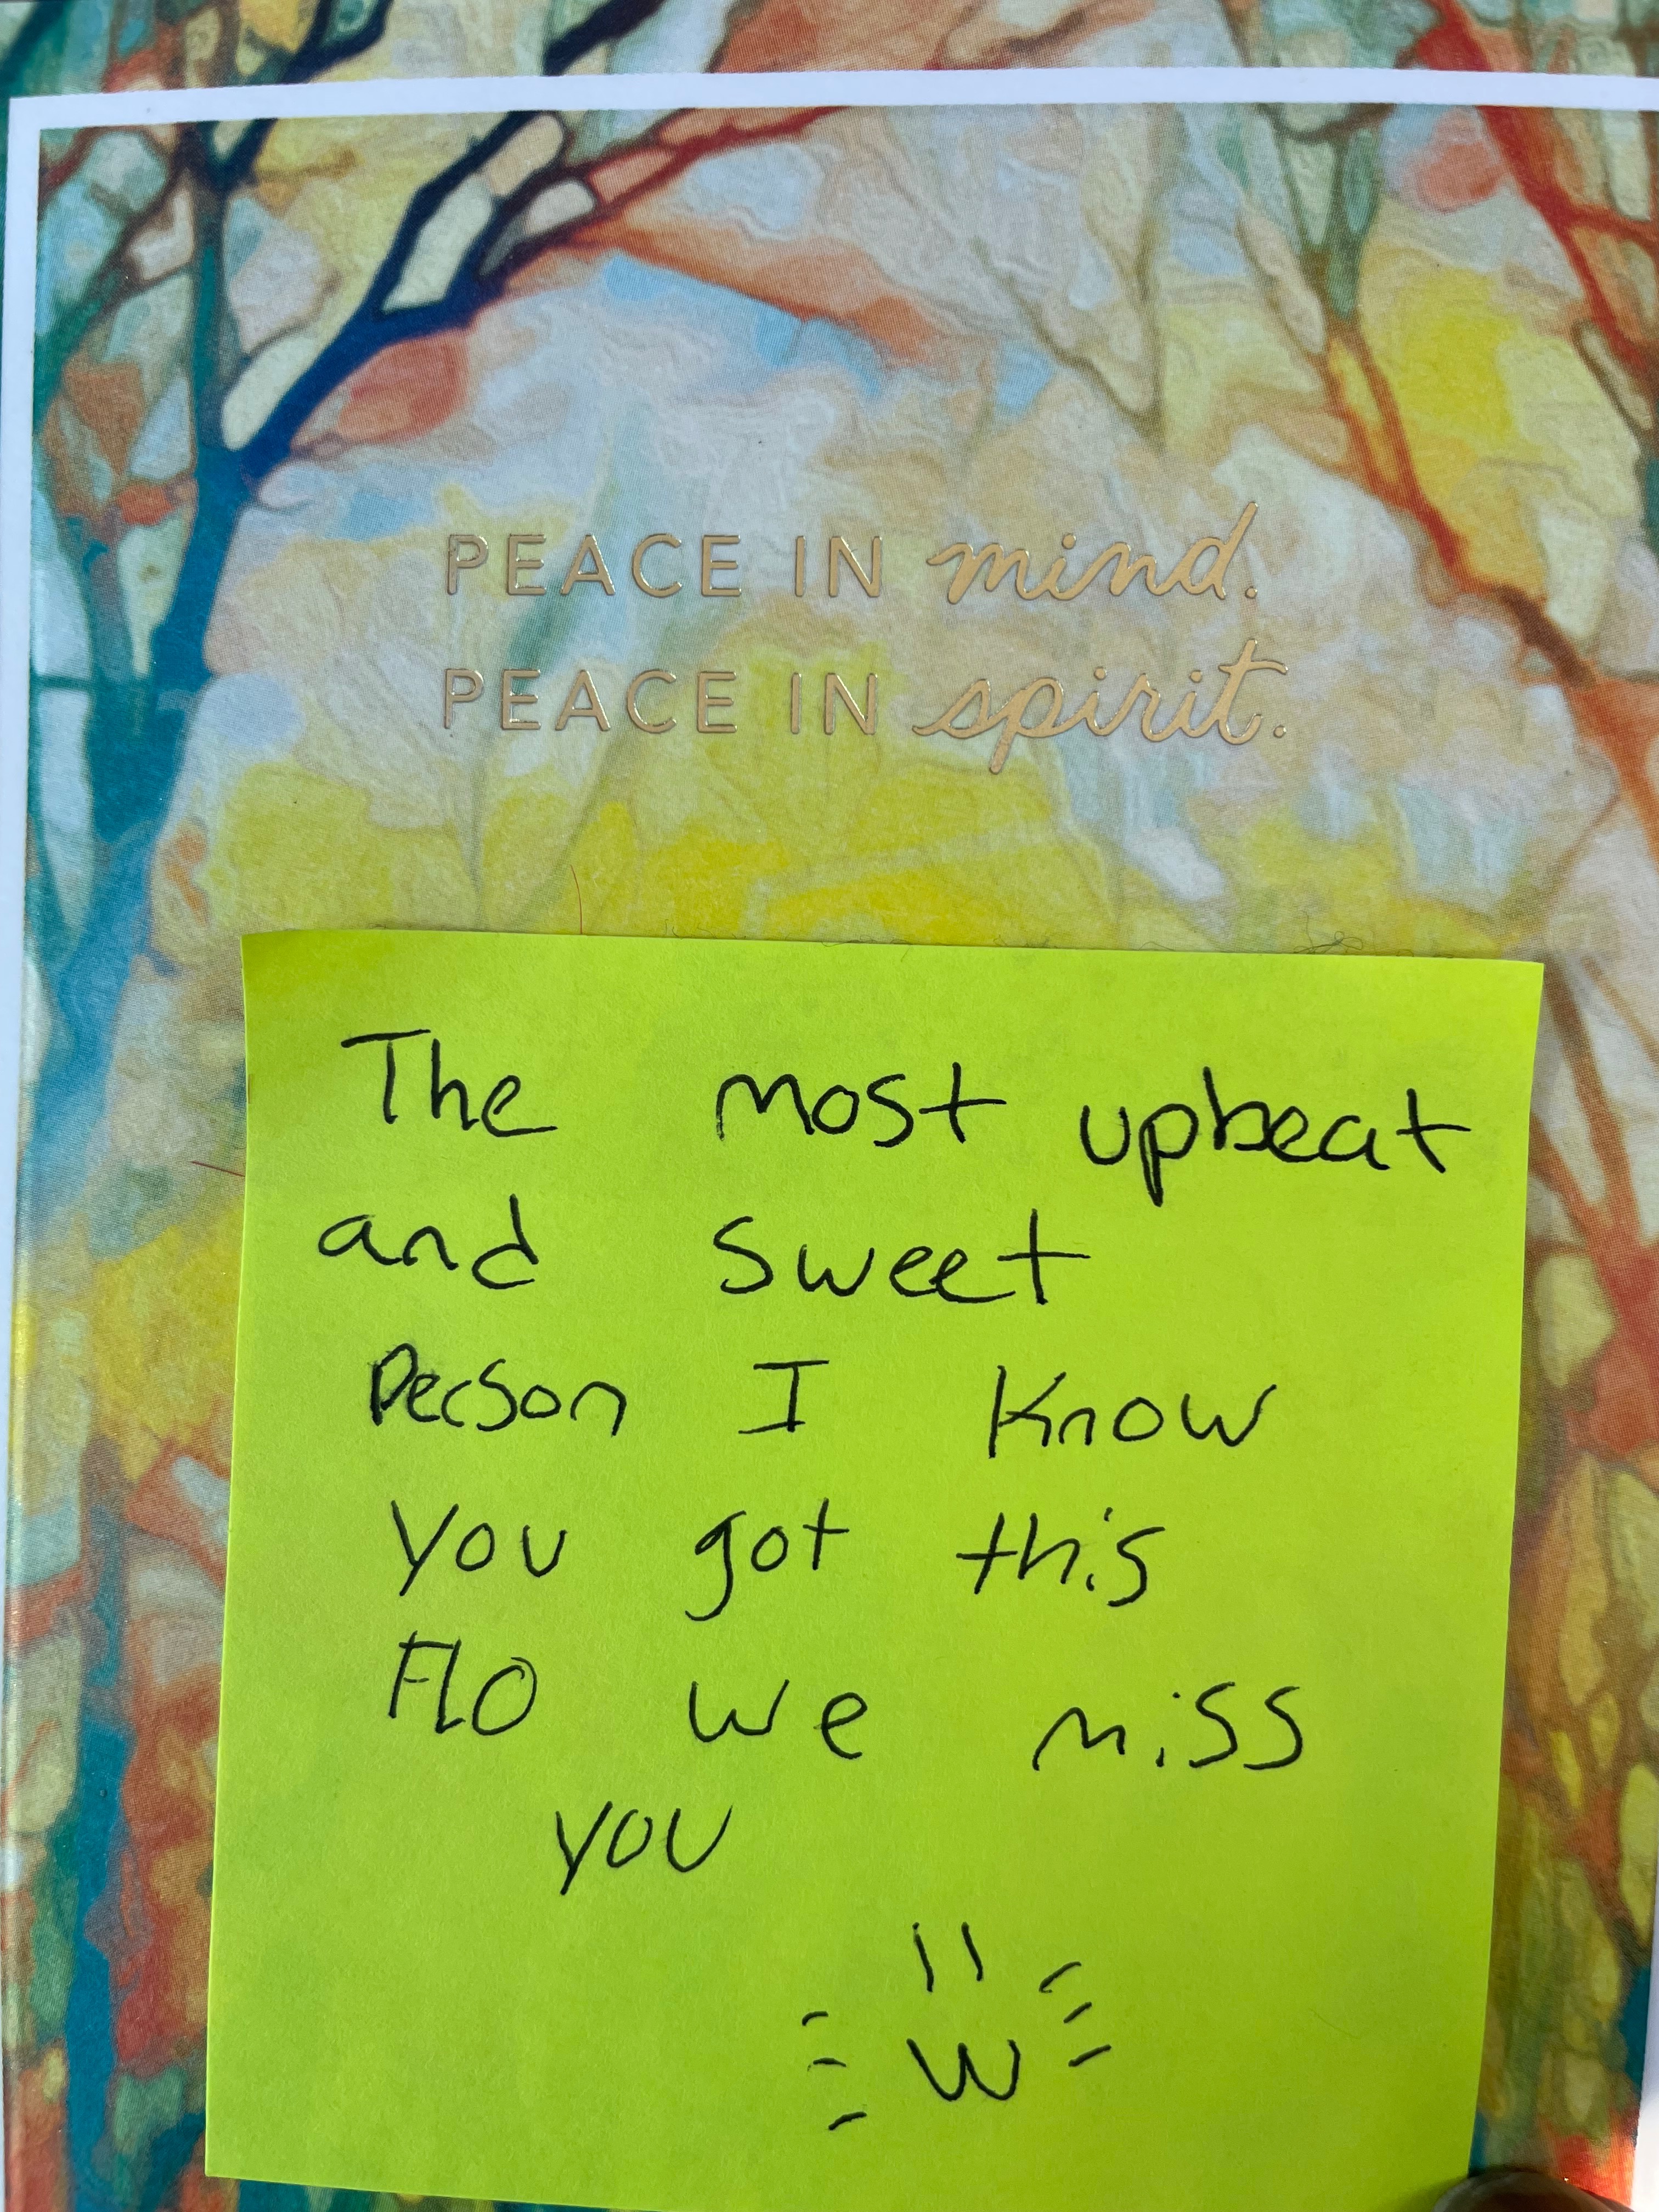 PEACE IN mind.
PEACE IN spirit.
The most upbeat
and sweet
Person I Know
you got this
Flo we miss
you